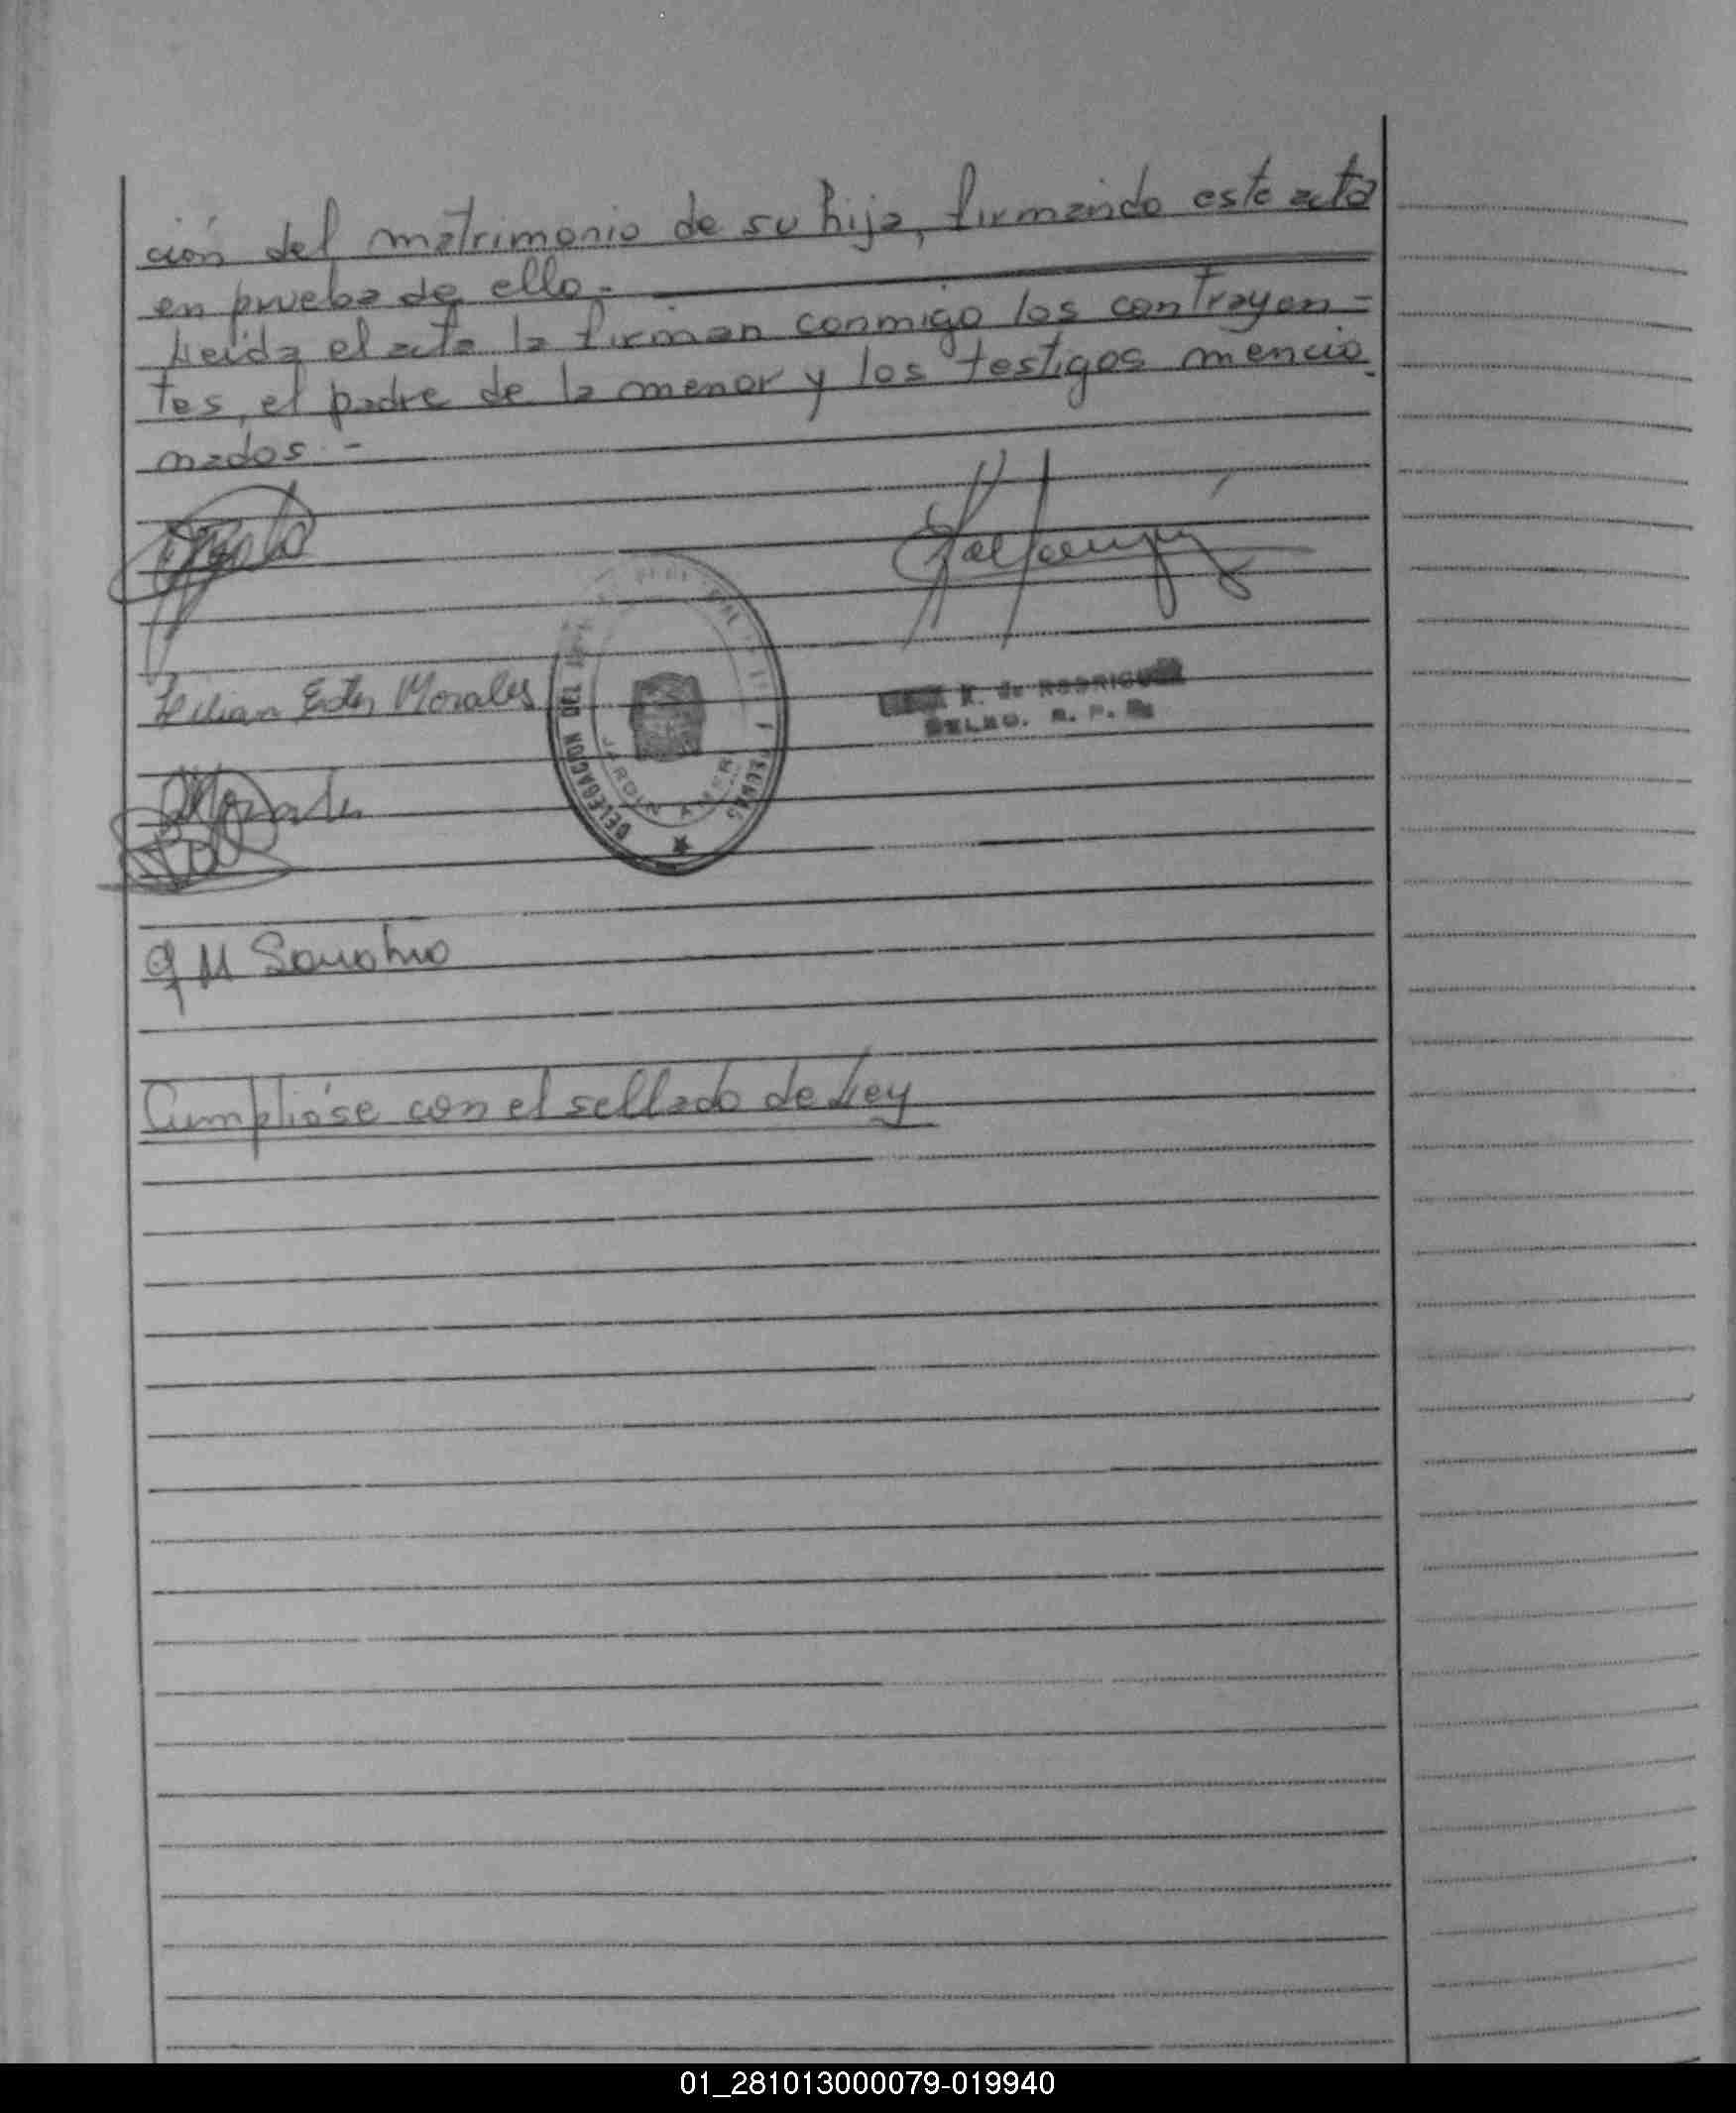 ción del matrimonio de su hija, firmando este acta
en prueba de ello.-
Leída el acta la firman conmigo los contrayen-
tes, el padre de la menor y los testigos mencio-
nados.-
Lilian Ester Morales
DELEGACION DEL
JARDIN AMER
R. de RODRIGUEZ
DELEG. R. P.
Morales
M
Cumplióse con el sellado de Ley
01_281013000079-019940